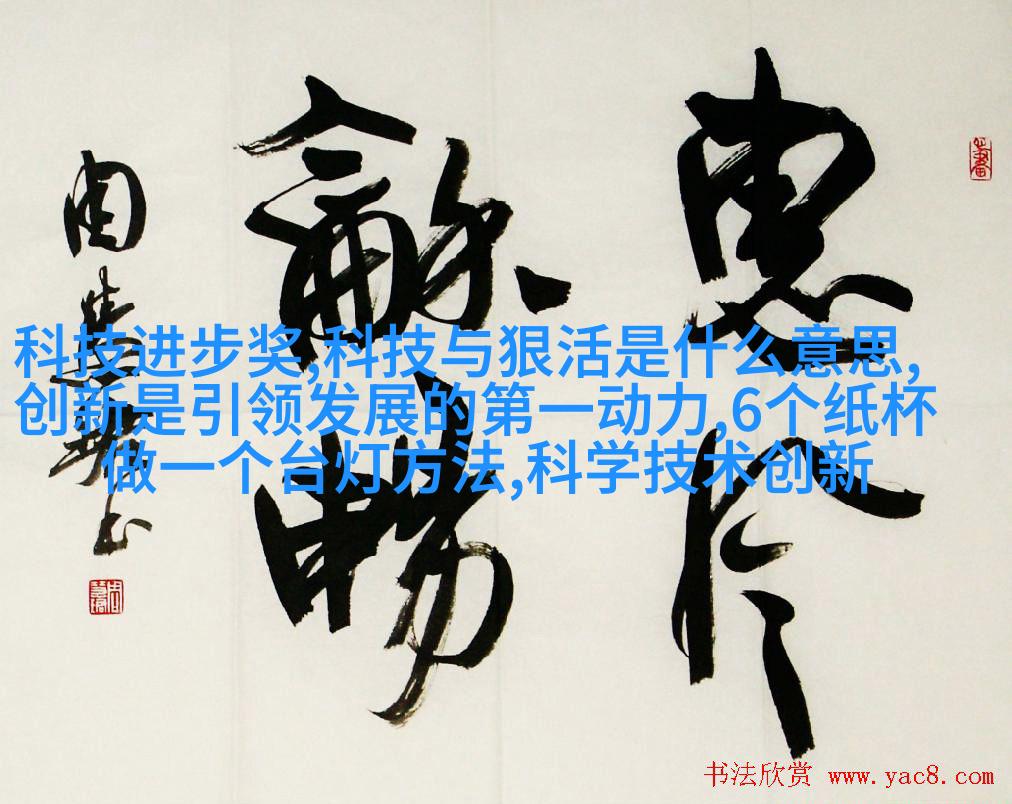 惠風
龢暢
周慧珺書
科技进步奖,科技与狠活是什么意思,
创新是引领发展的第一动力,6个纸杯
做一个台灯方法,科学技术创新
书法欣赏 www.yac8.com